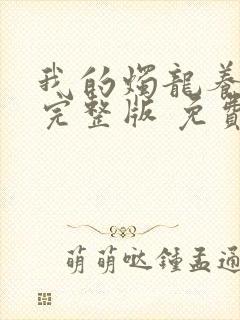 我的燭龍養
完整版 免費
萌萌哒鍾孟通